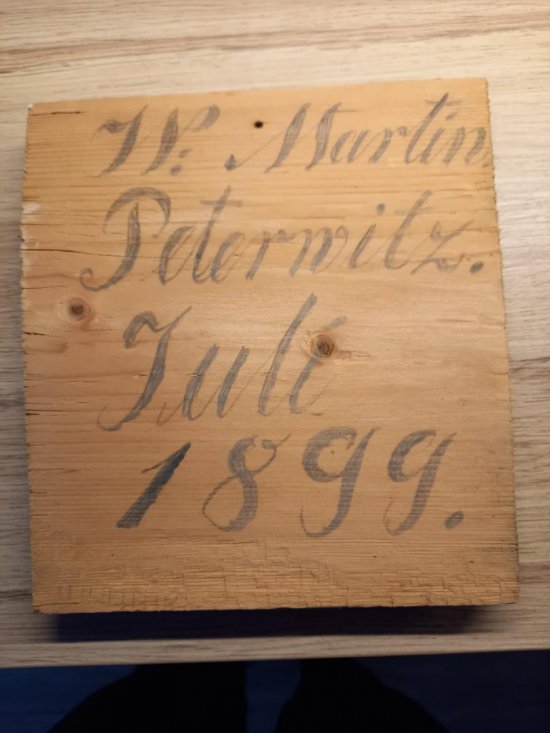 W. Martin
Peterwitz.
Juli
1899.